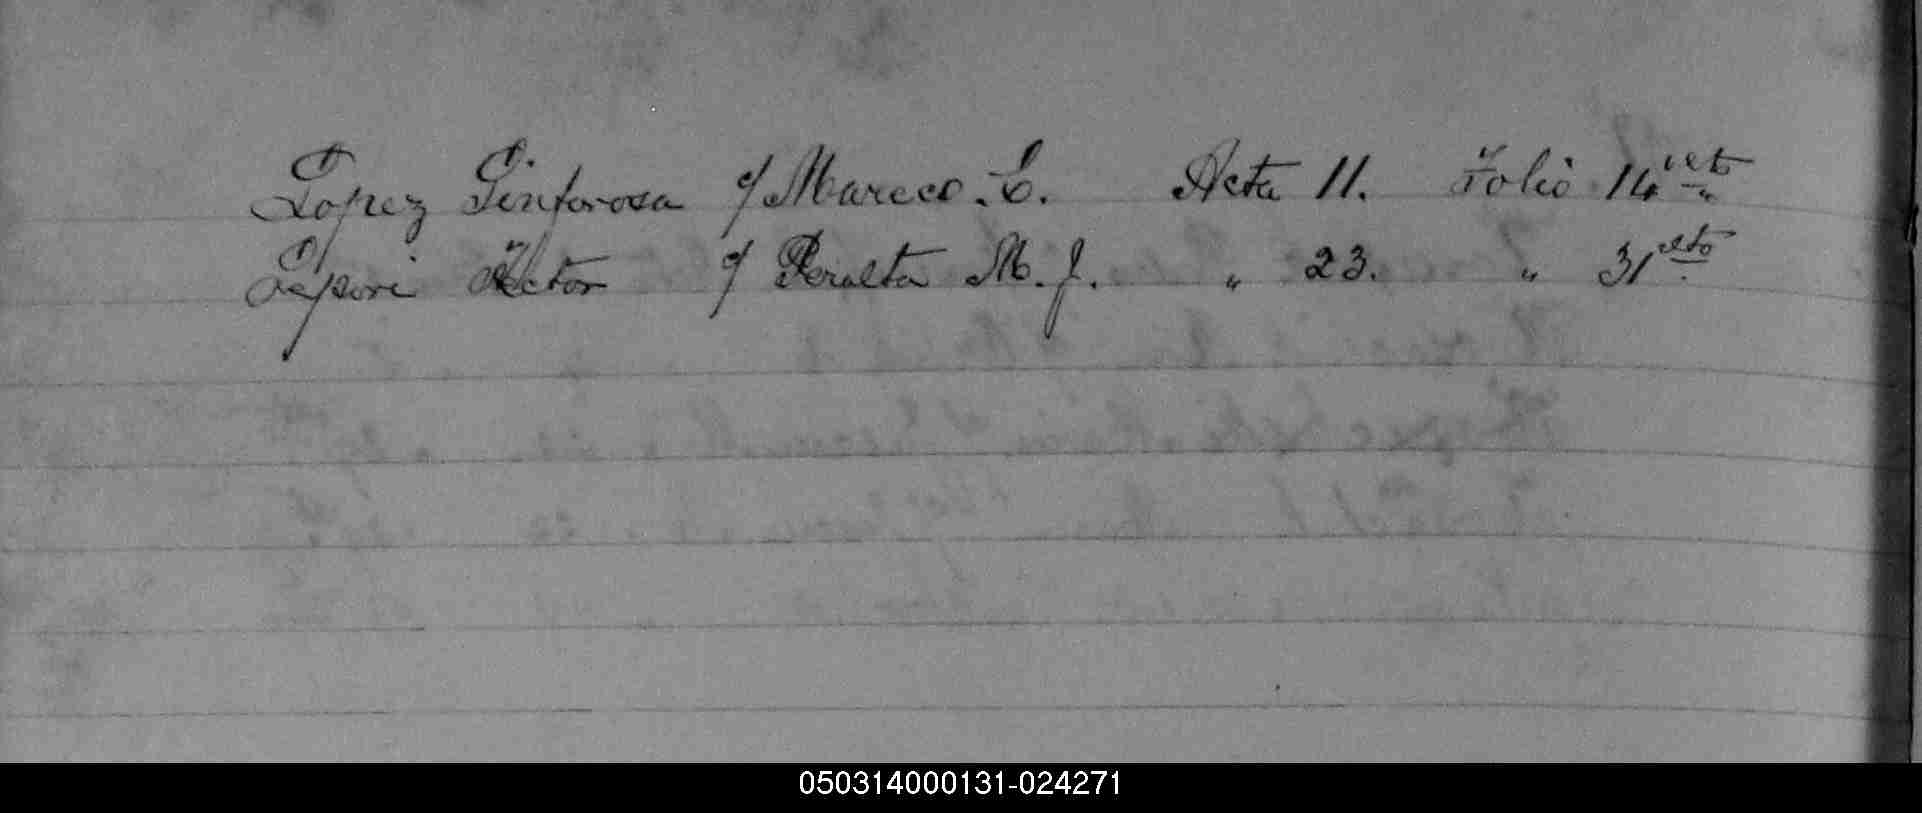 Lopez Sinforosa c/ Mareco. C. Acta 11. Folio 14 vto
Lepori Hector c/ Peralta M. J. " 23. " 31 vto
050314000131-024271